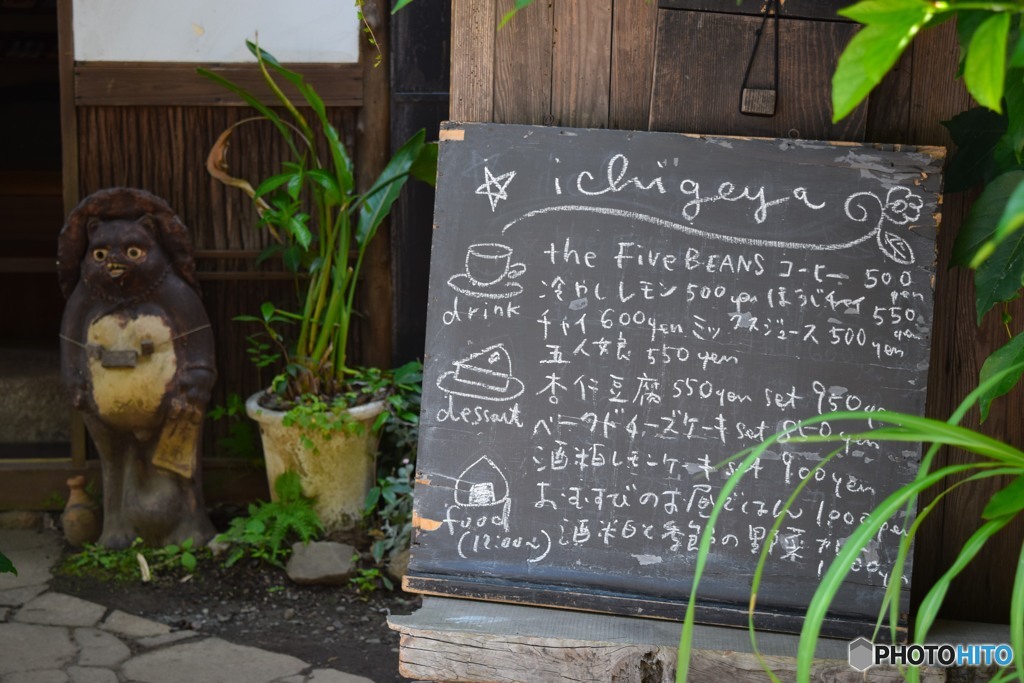 ichigeya
drink
the Five BEANS コーヒー 500 yen
冷やしレモン 500 yen ほうじチャイ 550 yen
チャイ 600 yen ミックスジュース 500 yen
五人娘 550 yen
dessart
杏仁豆腐 550 yen set 950 yen
ベークドチーズケーキ set 850 yen
酒粕レモンケーキ set 900 yen
food
(12:00~)
おむすびのお昼ごはん 1000 yen
酒粕と季節の野菜カレー yen
PHOTOHITO